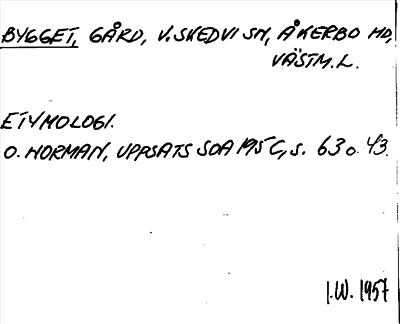 BYGGET, GÅRD, V. SKEDVI SN, ÅKERBO HD,
VÄSTM. L.
ETYMOLOGI.
O. NORMAN, UPPSATS SOA 195 C, S. 63 o. 43.
I.W. 1957